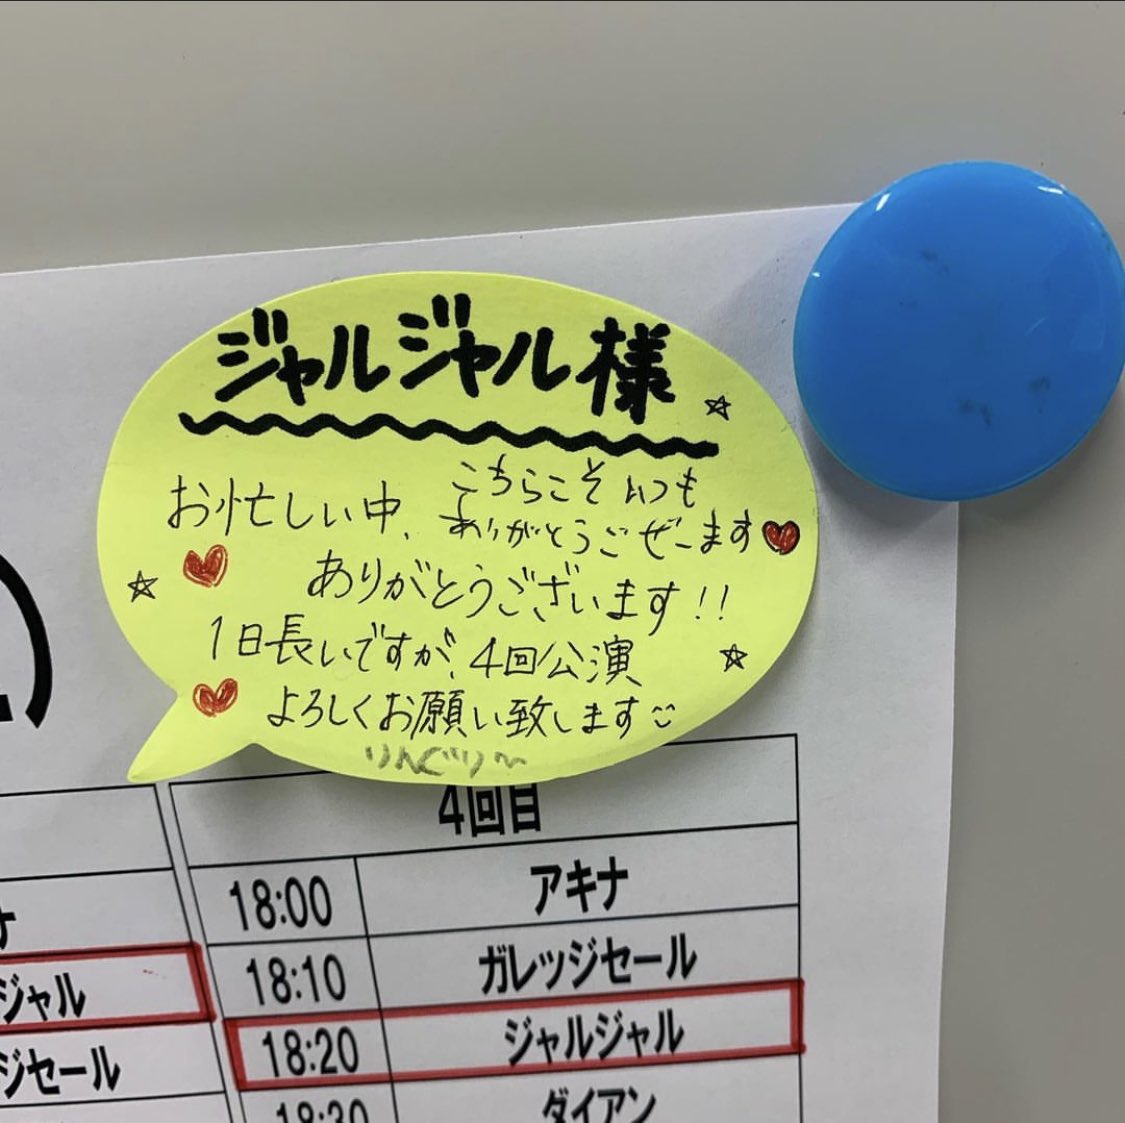 ジャルジャル様
お忙しい中、
こちらこそいつも
ありがとうございます!!
1日長いですが、4回公演
よろしくお願い致します
4回目
18:00 アキナ
18:10 ガレッジセール
ジャル
18:20 ジャルジャル
ジセール
18:30 ダイアン